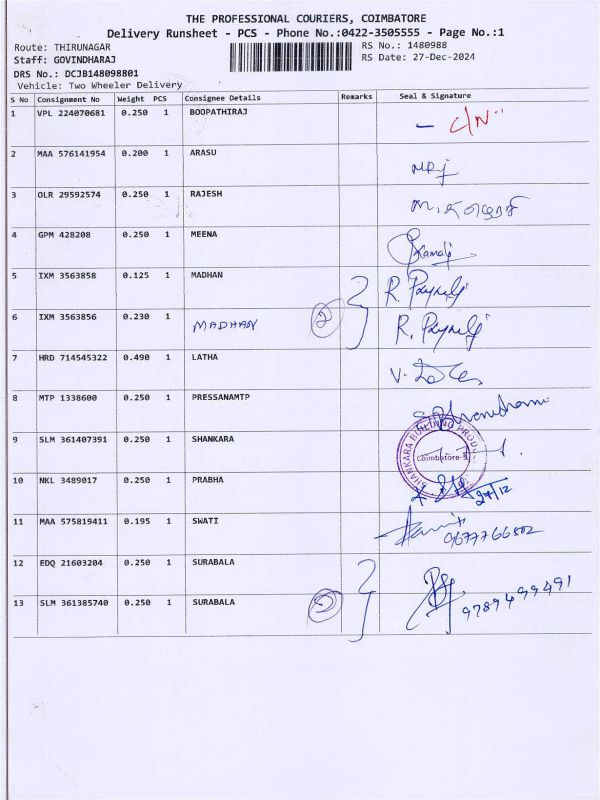 THE PROFESSIONAL COURIERS, COIMBATORE
Delivery Runsheet - PCS - Phone No.:0422-3505555 - Page No.:1
Route: THIRUNAGAR
RS No.: 1480988
Staff: GOVINDHARAJ
RS Date: 27-Dec-2024
DRS No.: DCJB148098801
Vehicle: Two Wheeler Delivery
S No Consignment No Weight PCS Consignee Details Remarks Seal & Signature
1 VPL 224070681 0.250 1 BOOPATHIRAJ - C/N"
2 MAA 576141954 0.200 1 ARASU
3 OLR 29592574 0.250 1 RAJESH
4 GPM 428208 0.250 1 MEENA Kamali
5 IXM 3563858 0.125 1 MADHAN
6 IXM 3563856 0.230 1 MADHAN 2
7 HRD 714545322 0.490 1 LATHA
8 MTP 1338600 0.250 1 PRESSANAMTP
9 SLM 361407391 0.250 1 SHANKARA SHANKARA BUILDING PRODU Coimbatore
10 NKL 3489017 0.250 1 PRABHA 27/12
11 MAA 575819411 0.195 1 SWATI 9677766802
12 EDQ 21603204 0.250 1 SURABALA
13 SLM 361385740 0.250 1 SURABALA 9789499491